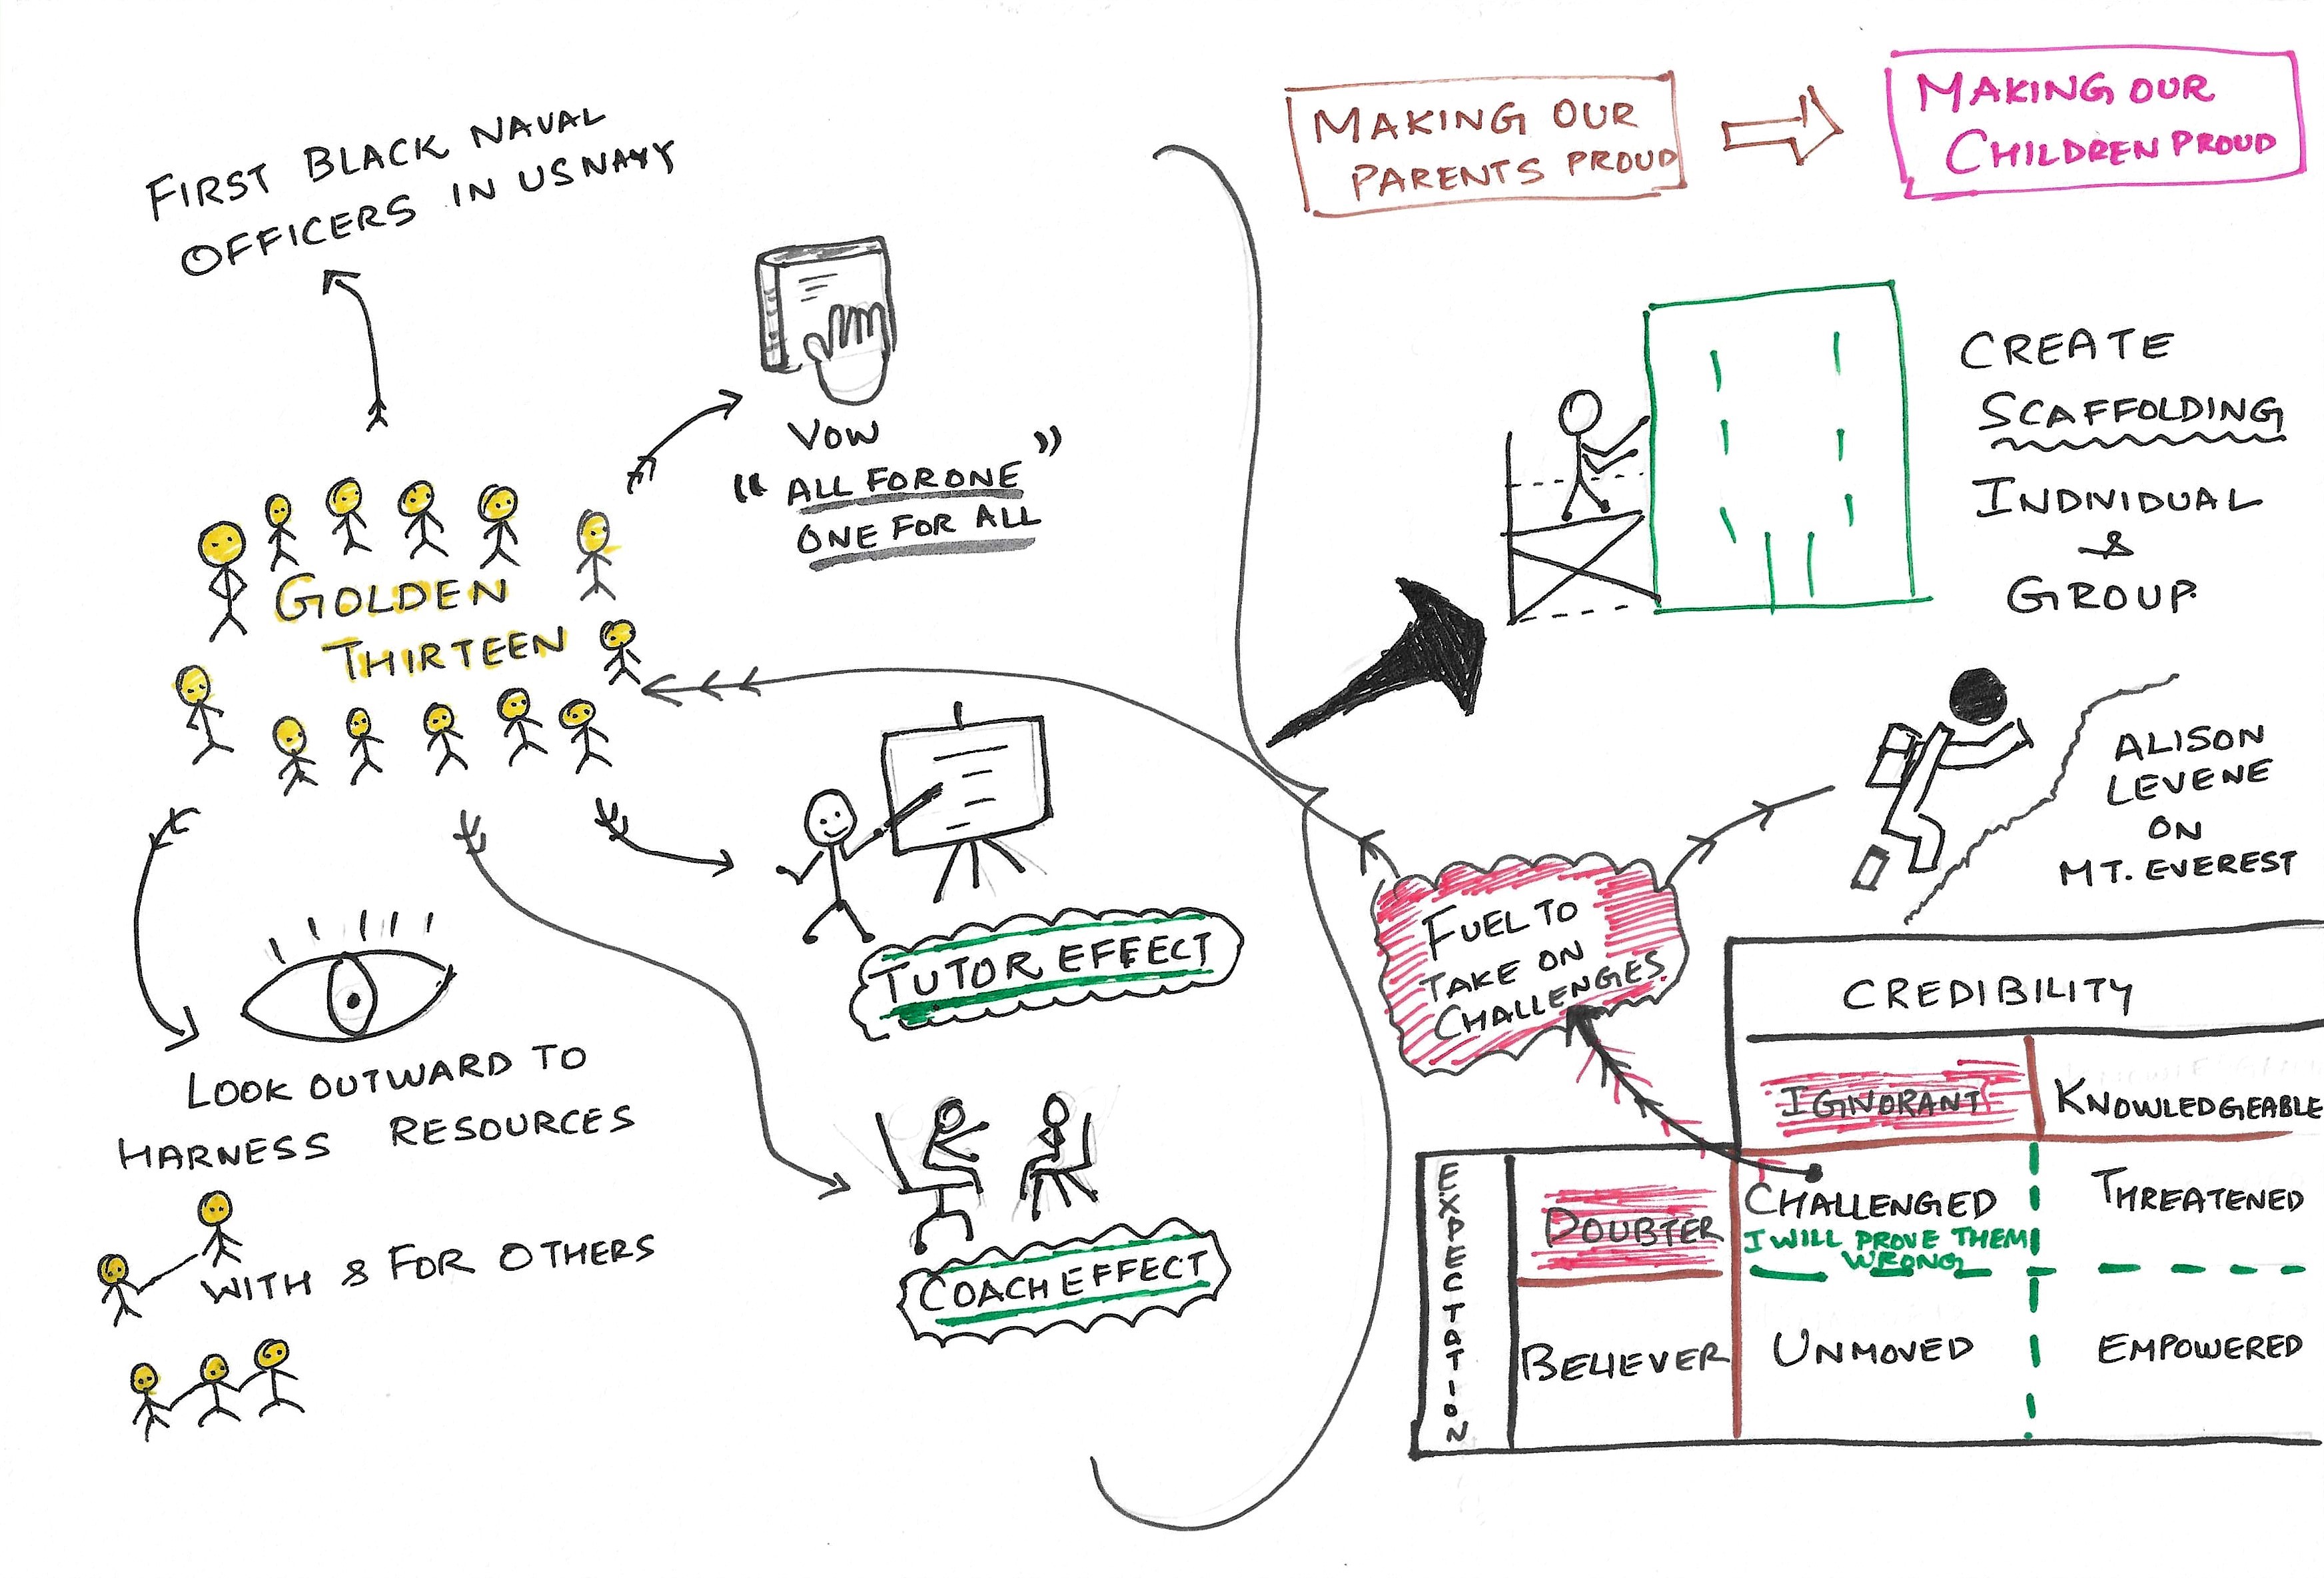 FIRST BLACK NAVAL
OFFICERS IN US NAVY
VOW
"ALL FOR ONE
ONE FOR ALL"
GOLDEN
THIRTEEN
TUTOR EFFECT
COACH EFFECT
LOOK OUTWARD TO
HARNESS RESOURCES
WITH & FOR OTHERS
MAKING OUR
PARENTS PROUD
MAKING OUR
CHILDREN PROUD
CREATE
SCAFFOLDING
INDIVIDUAL
&
GROUP.
ALISON
LEVENE
ON
MT. EVEREST
FUEL TO
TAKE ON
CHALLENGES
CREDIBILITY
IGNORANT
KNOWLEDGEABLE
EXPECTATION
DOUBTER
CHALLENGED
I WILL PROVE THEM
WRONG
THREATENED
BELIEVER
UNMOVED
EMPOWERED